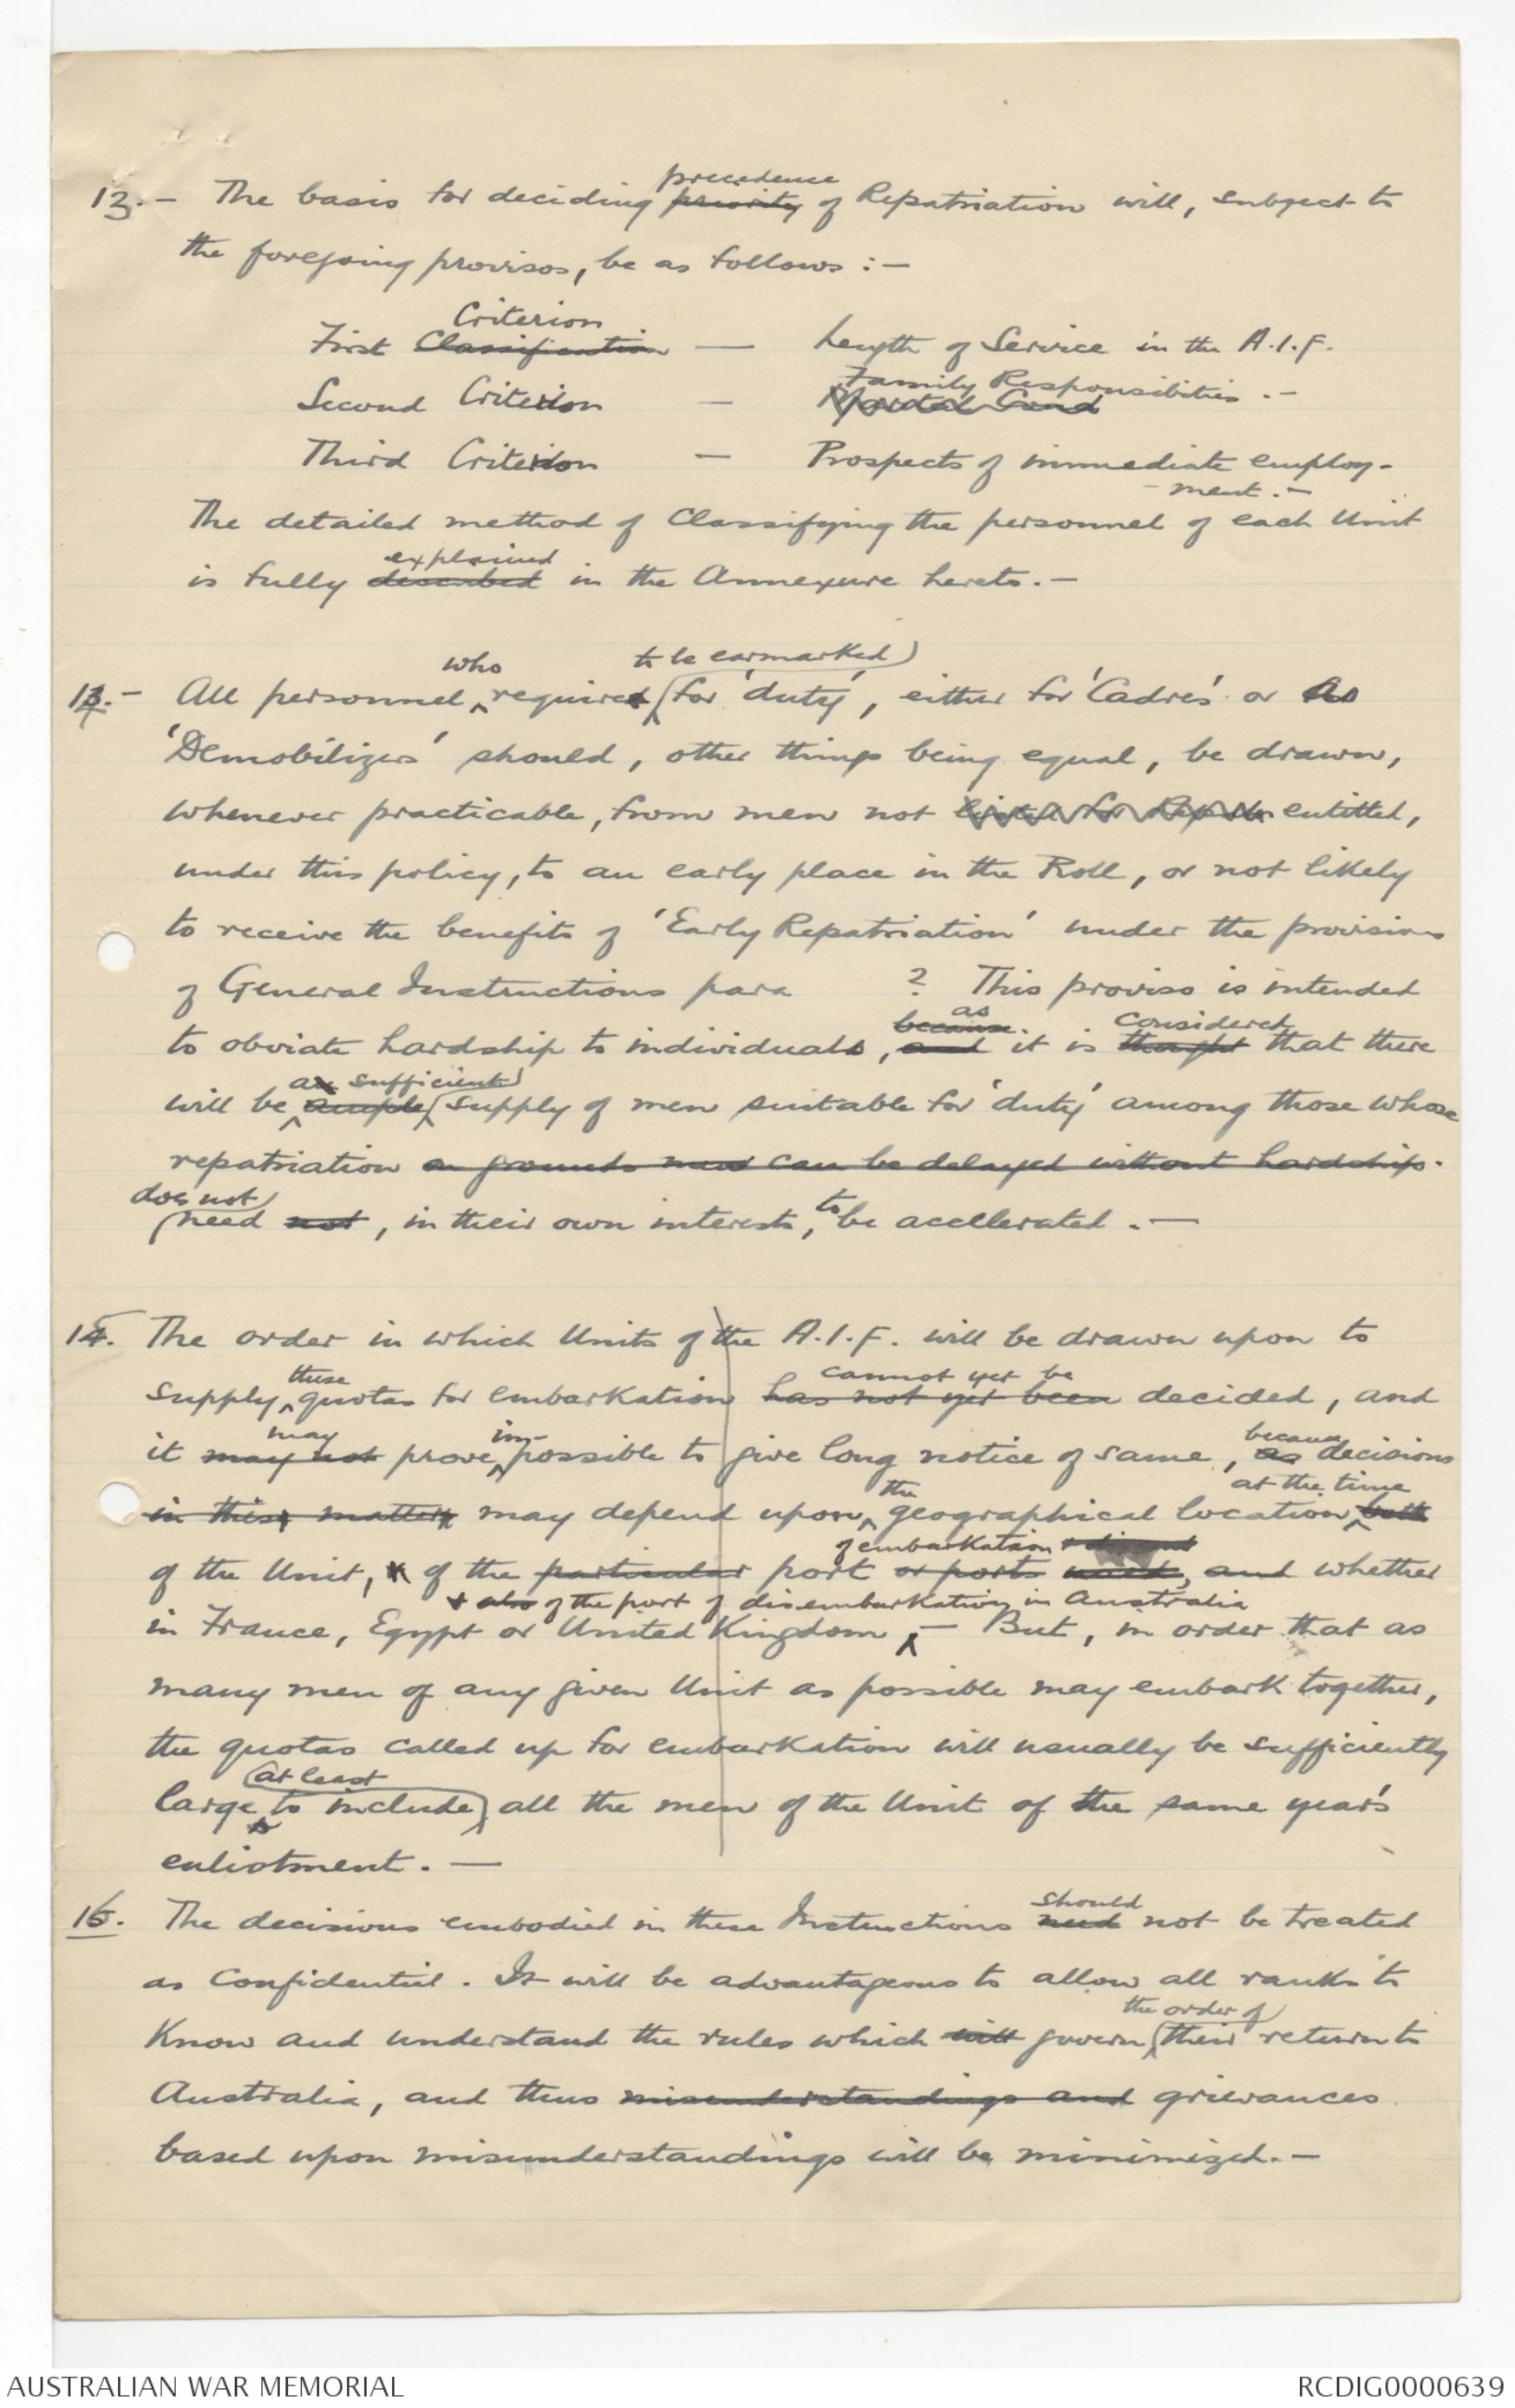 precedence
13. - The basis for deciding priority of Repatriation will, subject to
the foregoing provisos, be as follows :-
Criterion
First Classification — Length of Service in the A.I.F.
Family Responsibilities . -
Second Criterion — Marital Cond
Third Criterion — Prospects of immediate employ-
- ment. -
The detailed method of Classifying the personnel of each Unit
explained
is fully described in the Annexure hereto. -
who to be earmarked
14. - All personnel required for 'duty', either for 'Cadres' or as
'Demobilizers' should, other things being equal, be drawn,
whenever practicable, from men not listed for Repatn entitled,
under this policy, to an early place in the Roll, or not likely
to receive the benefits of 'Early Repatriation' under the provisions
of General Instructions para ? This proviso is intended
as
because. considered
to obviate hardship to individuals, and it is thought that there
a sufficient
will be ample supply of men suitable for 'duty' among those whose
repatriation on grounds can be delayed without hardship.
does not
need not, in their own interests, to be acellerated. —
15. The order in which Units of the A.I.F. will be drawn upon to
these cannot yet be
supply quotas for embarkation has not yet been decided, and
may im- because
it may not prove possible to give long notice of same, as decisions
the at the time
in this matter may depend upon geographical location both
of embarkation +
of the Unit, & of the particular port or ports used, and whether
+ also of the port of disembarkation in Australia
in France, Egypt or United Kingdom — But, in order that as
many men of any given Unit as possible may embark together,
the quotas called up for embarkation will usually be sufficiently
at least
large to include all the men of the Unit of the same year's
enlistment. —
16. The decisions embodied in these Instructions
should
need not be treated
as Confidential. It will be advantageous to allow all ranks to
the order of
Know and understand the rules which will govern their return to
Australia, and thus misunderstandings and grievances
based upon misunderstandings will be minimized. -
AUSTRALIAN WAR MEMORIAL
RCDIG0000639